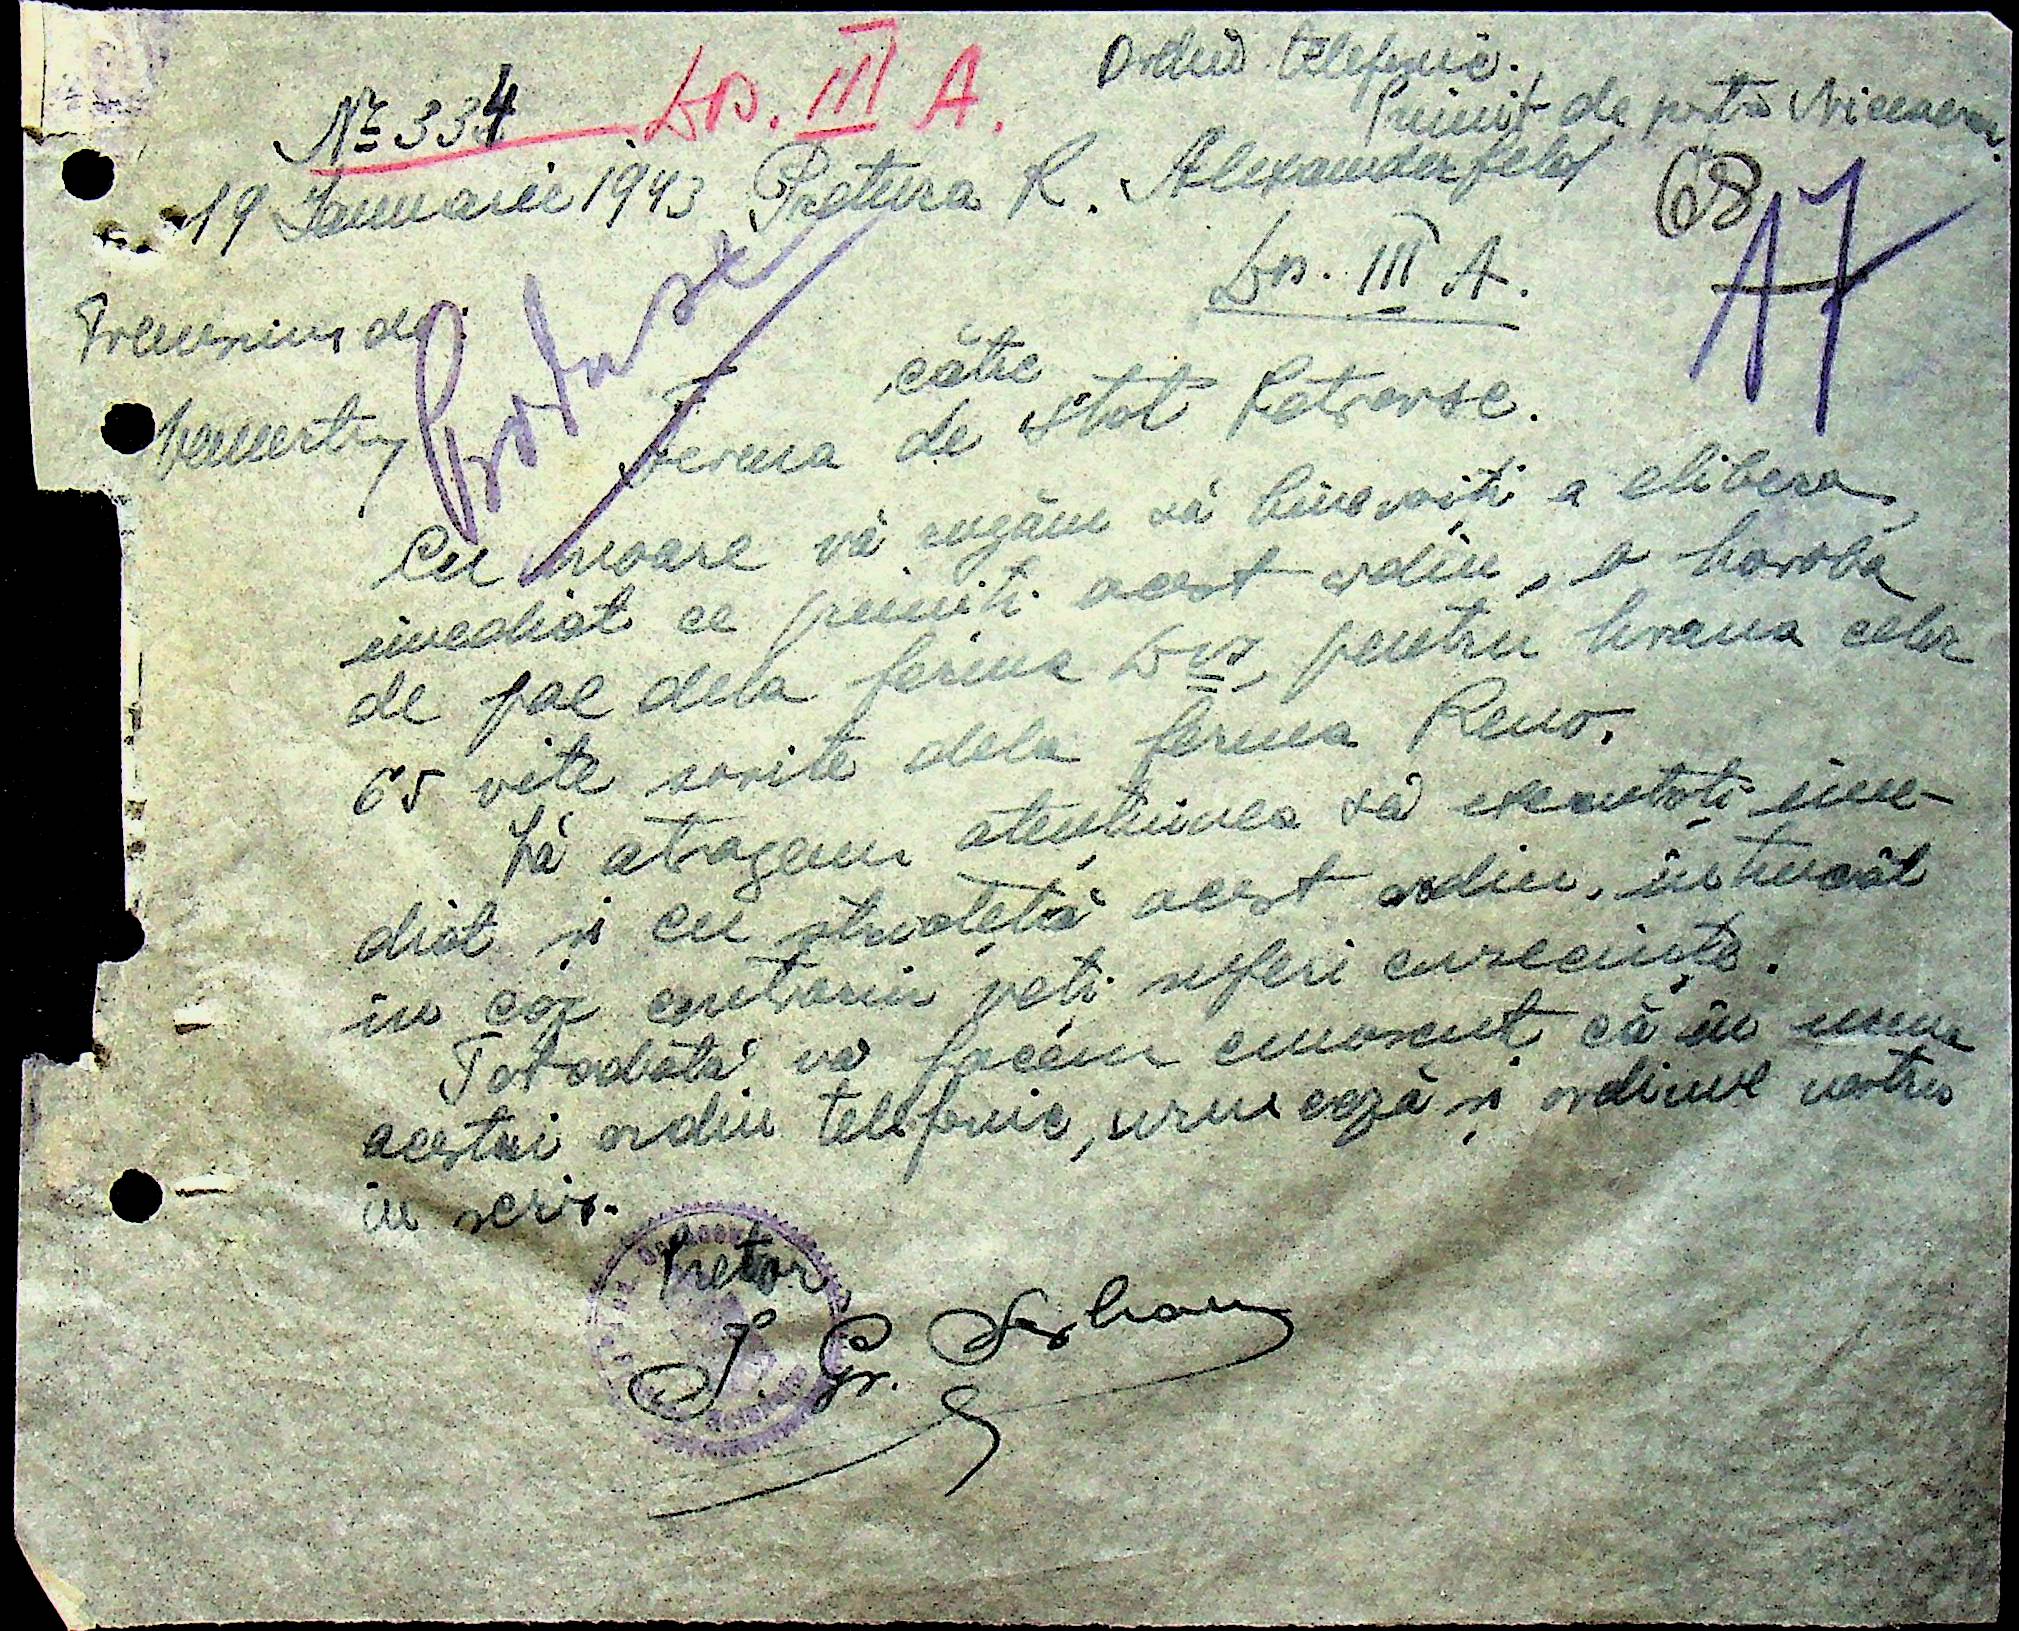 Ordin telefonic.
Primit de
Nr 334 Ds. III A.
19 Ianuarie 1943 Pretura R. Alexanderfeld
68
17
Ds. III A.
către
Ferma de Stat Petrovsc.
Cu onoare vă rugăm să binevoiți a elibera,
imediat ce primiți acest ordin, o harabă
de pae dela ferma pentru hrana celor
65 vite sosite dela ferma Reno.
Vă atragem atențiunea să executați ime-
diat și cu strictețã acest ordin, întrucât
în caz contrariu veți suferi consecințe.
Totodată vă facem cunoscut că în urma
acestui ordin telefonic, urmează și ordinul nostru
în scris.
Pretor
I. Gr. Șerban